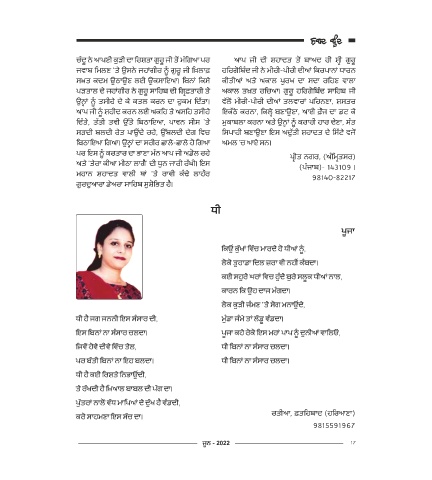 ਸ਼ਬਦ ਬੂੰਦ
ਚੰਦੂ ਨੇ ਆਪਣੀ ਕੁੜੀ ਦਾ ਰਿਸ਼ਤਾ ਗੁਰੂ ਜੀ ਤੋਂ ਮੰਗਿਆ ਪਰ
ਜਵਾਬ ਮਿਲਣ 'ਤੇ ਉਸਨੇ ਜਹਾਂਗੀਰ ਨੂੰ ਗੁਰੂ ਜੀ ਖ਼ਿਲਾਫ਼
ਸਖ਼ਤ ਕਦਮ ਉਠਾਉਣ ਲਈ ਉਕਸਾਇਆ। ਬਿਨਾਂ ਕਿਸੇ
ਪੜਤਾਲ ਦੇ ਜਹਾਂਗੀਰ ਨੇ ਗੁਰੂ ਸਾਹਿਬ ਦੀ ਗ੍ਰਿਫ਼ਤਾਰੀ ਤੇ
ਉਨ੍ਹਾਂ ਨੂੰ ਤਸੀਹੇ ਦੇ ਕੇ ਕਤਲ ਕਰਨ ਦਾ ਹੁਕਮ ਦਿੱਤਾ।
ਆਪ ਜੀ ਨੂੰ ਸ਼ਹੀਦ ਕਰਨ ਲਈ ਅਕਹਿ ਤੇ ਅਸਹਿ ਤਸੀਹੇ
ਦਿੱਤੇ, ਤੱਤੀ ਤਵੀ ਉੱਤੇ ਬਿਠਾਇਆ, ਪਾਵਨ ਸੀਸ 'ਤੇ
ਸੜਦੀ ਬਲਦੀ ਰੇਤ ਪਾਉਂਦੇ ਰਹੇ, ਉੱਬਲਦੀ ਦੇਗ ਵਿਚ
ਬਿਠਾਇਆ ਗਿਆ। ਉਨ੍ਹਾਂ ਦਾ ਸਰੀਰ ਛਾਲੇ-ਛਾਲੇ ਹੋ ਗਿਆ
ਪਰ ਇਸ ਨੂੰ ਕਰਤਾਰ ਦਾ ਭਾਣਾ ਮੰਨ ਆਪ ਜੀ ਅਡੋਲ ਰਹੇ
ਅਤੇ 'ਤੇਰਾ ਕੀਆ ਮੀਠਾ ਲਾਗੈ' ਦੀ ਧੁਨ ਜਾਰੀ ਰੱਖੀ। ਇਸ
ਮਹਾਨ ਸ਼ਹਾਦਤ ਵਾਲੀ ਥਾਂ 'ਤੇ ਰਾਵੀ ਕੰਢੇ ਲਾਹੌਰ
ਗੁਰਦੁਆਰਾ ਡੇਅਰਾ ਸਾਹਿਬ ਸੁਸ਼ੋਭਿਤ ਹੈ।
ਆਪ ਜੀ ਦੀ ਸ਼ਹਾਦਤ ਤੋਂ ਬਾਅਦ ਹੀ ਸ੍ਰੀ ਗੁਰੂ
ਹਰਿਗੋਬਿੰਦ ਜੀ ਨੇ ਮੀਰੀ-ਪੀਰੀ ਦੀਆਂ ਕਿਰਪਾਨਾਂ ਧਾਰਨ
ਕੀਤੀਆਂ ਅਤੇ ਅਕਾਲ ਪੁਰਖ ਦਾ ਸਦਾ ਰਹਿਣ ਵਾਲਾ
ਅਕਾਲ ਤਖ਼ਤ ਰਚਿਆ। ਗੁਰੂ ਹਰਿਗੋਬਿੰਦ ਸਾਹਿਬ ਜੀ
ਵੱਲੋਂ ਮੀਰੀ-ਪੀਰੀ ਦੀਆਂ ਤਲਵਾਰਾਂ ਪਹਿਨਣਾ, ਸ਼ਸਤਰ
ਇਕੱਠੇ ਕਰਨਾ, ਕਿਲ੍ਹੇ ਬਣਾਉਣਾ, ਆਗੀ ਫ਼ੌਜ ਦਾ ਡਟ ਕੇ
ਮੁਕਾਬਲਾ ਕਰਨਾ ਅਤੇ ਉਨ੍ਹਾਂ ਨੂੰ ਕਰਾਰੀ ਹਾਰ ਦੇਣਾ, ਸੰਤ
ਸਿਪਾਹੀ ਬਣਾਉਣਾ ਇਸ ਅਦੁੱਤੀ ਸ਼ਹਾਦਤ ਦੇ ਸਿੱਟੇ ਵਜੋਂ
ਅਮਲ 'ਚ ਆਏ ਸਨ।
ਪ੍ਰੀਤ ਨਗਰ, (ਅੰਮ੍ਰਿਤਸਰ)
(ਪੰਜਾਬ)- 143109 ।
98140-82217
ਧੀ
ਪੂਜਾ
ਧੀ ਹੈ ਜਗ ਜਨਨੀ ਇਸ ਸੰਸਾਰ ਦੀ,
ਇਸ ਬਿਨਾਂ ਨਾ ਸੰਸਾਰ ਚਲਦਾ।
ਜਿਵੇਂ ਹੋਵੇ ਦੀਵੇ ਵਿੱਚ ਤੇਲ,
ਪਰ ਬੱਤੀ ਬਿਨਾਂ ਨਾ ਇਹ ਬਲਦਾ।
ਧੀ ਹੈ ਕਈ ਰਿਸ਼ਤੇ ਨਿਭਾਉਂਦੀ,
ਤੇ ਰੱਖਦੀ ਹੈ ਖ਼ਿਆਲ ਬਾਬਲ ਦੀ ਪੱਗ ਦਾ।
ਪੁੱਤਰਾਂ ਨਾਲੋਂ ਵੱਧ ਮਾਪਿਆਂ ਦੇ ਦੁੱਖ ਹੈ ਵੰਡਦੀ,
ਕਰੋ ਸਾਹਮਣਾ ਇਸ ਸੱਚ ਦਾ।
ਕਿਉਂ ਕੁੱਖਾਂ ਵਿੱਚ ਮਾਰਦੇ ਹੋ ਧੀਆਂ ਨੂੰ,
ਲੋਕੋ ਤੁਹਾਡਾ ਦਿਲ ਜ਼ਰਾ ਵੀ ਨਹੀਂ ਕੰਬਦਾ।
ਕਈ ਸਹੁਰੇ ਘਰਾਂ ਵਿਚ ਹੁੰਦੇ ਬੁਰੇ ਸਲੂਕ ਧੀਆਂ ਨਾਲ,
ਕਾਰਨ ਕਿ ਉਹ ਦਾਜ ਮੰਗਦਾ।
ਲੋਕ ਕੁੜੀ ਜੰਮਣ 'ਤੇ ਸੋਗ ਮਨਾਉਂਦੇ,
ਮੁੰਡਾ ਜੰਮੇ ਤਾਂ ਲੱਡੂ ਵੰਡਦਾ।
ਪੂਜਾ ਕਹੇ ਰੋਕੋ ਇਸ ਮਹਾਂ ਪਾਪ ਨੂੰ ਦੁਨੀਆਂ ਵਾਲਿਓ,
ਧੀ ਬਿਨਾਂ ਨਾ ਸੰਸਾਰ ਚਲਦਾ।
ਧੀ ਬਿਨਾਂ ਨਾ ਸੰਸਾਰ ਚਲਦਾ।
ਰਤੀਆ, ਫ਼ਤਹਿਬਾਦ (ਹਰਿਆਣਾ)
9815591967
ਜੂਨ - 2022
17